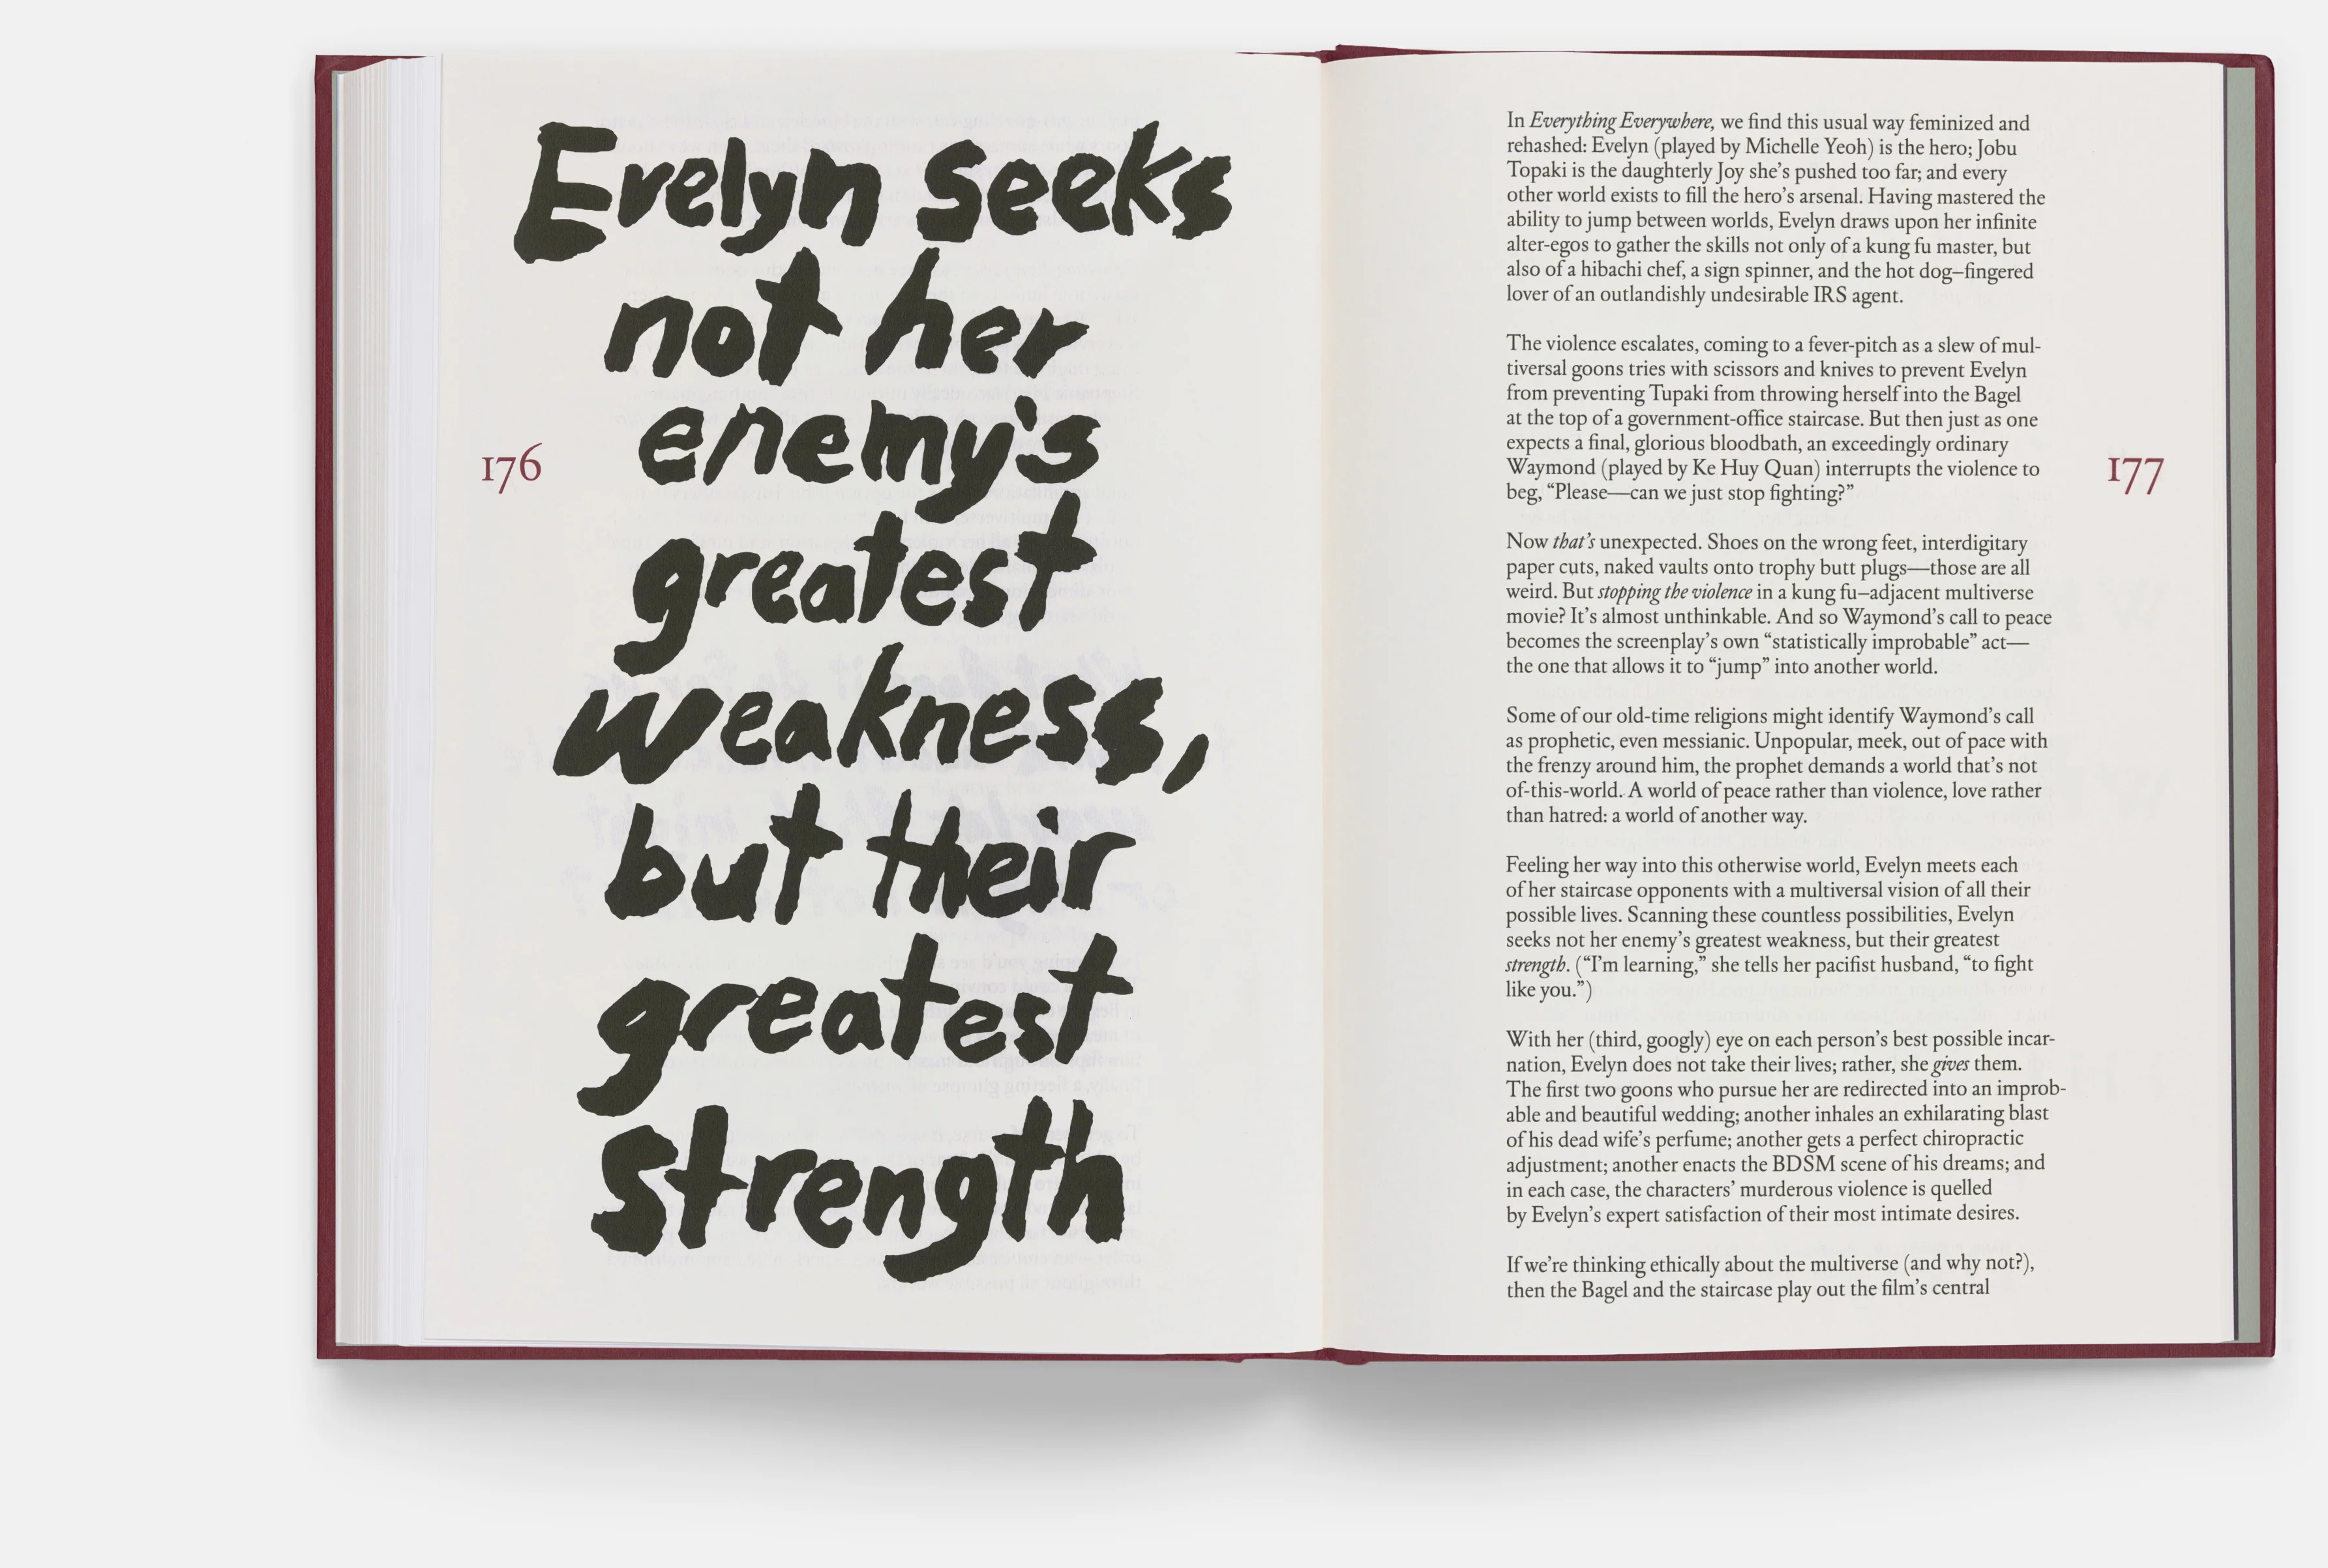 Evelyn seeks
not her
enemy's
greatest
weakness,
but their
greatest
strength
176
In Everything Everywhere, we find this usual way feminized and
rehashed: Evelyn (played by Michelle Yeoh) is the hero; Jobu
Topaki is the daughterly Joy she’s pushed too far; and every
other world exists to fill the hero’s arsenal. Having mastered the
ability to jump between worlds, Evelyn draws upon her infinite
alter-egos to gather the skills not only of a kung fu master, but
also of a hibachi chef, a sign spinner, and the hot dog–fingered
lover of an outlandishly undesirable IRS agent.
The violence escalates, coming to a fever-pitch as a slew of mul-
tiversal goons tries with scissors and knives to prevent Evelyn
from preventing Tupaki from throwing herself into the Bagel
at the top of a government-office staircase. But then just as one
expects a final, glorious bloodbath, an exceedingly ordinary
Waymond (played by Ke Huy Quan) interrupts the violence to
beg, “Please—can we just stop fighting?”
Now that’s unexpected. Shoes on the wrong feet, interdigitary
paper cuts, naked vaults onto trophy butt plugs—those are all
weird. But stopping the violence in a kung fu–adjacent multiverse
movie? It’s almost unthinkable. And so Waymond’s call to peace
becomes the screenplay’s own “statistically improbable” act—
the one that allows it to “jump” into another world.
Some of our old-time religions might identify Waymond’s call
as prophetic, even messianic. Unpopular, meek, out of pace with
the frenzy around him, the prophet demands a world that’s not
of-this-world. A world of peace rather than violence, love rather
than hatred: a world of another way.
Feeling her way into this otherwise world, Evelyn meets each
of her staircase opponents with a multiversal vision of all their
possible lives. Scanning these countless possibilities, Evelyn
seeks not her enemy’s greatest weakness, but their greatest
strength. (“I’m learning,” she tells her pacifist husband, “to fight
like you.”)
With her (third, googly) eye on each person’s best possible incar-
nation, Evelyn does not take their lives; rather, she gives them.
The first two goons who pursue her are redirected into an improb-
able and beautiful wedding; another inhales an exhilarating blast
of his dead wife’s perfume; another gets a perfect chiropractic
adjustment; another enacts the BDSM scene of his dreams; and
in each case, the characters’ murderous violence is quelled
by Evelyn’s expert satisfaction of their most intimate desires.
If we’re thinking ethically about the multiverse (and why not?),
then the Bagel and the staircase play out the film’s central
177